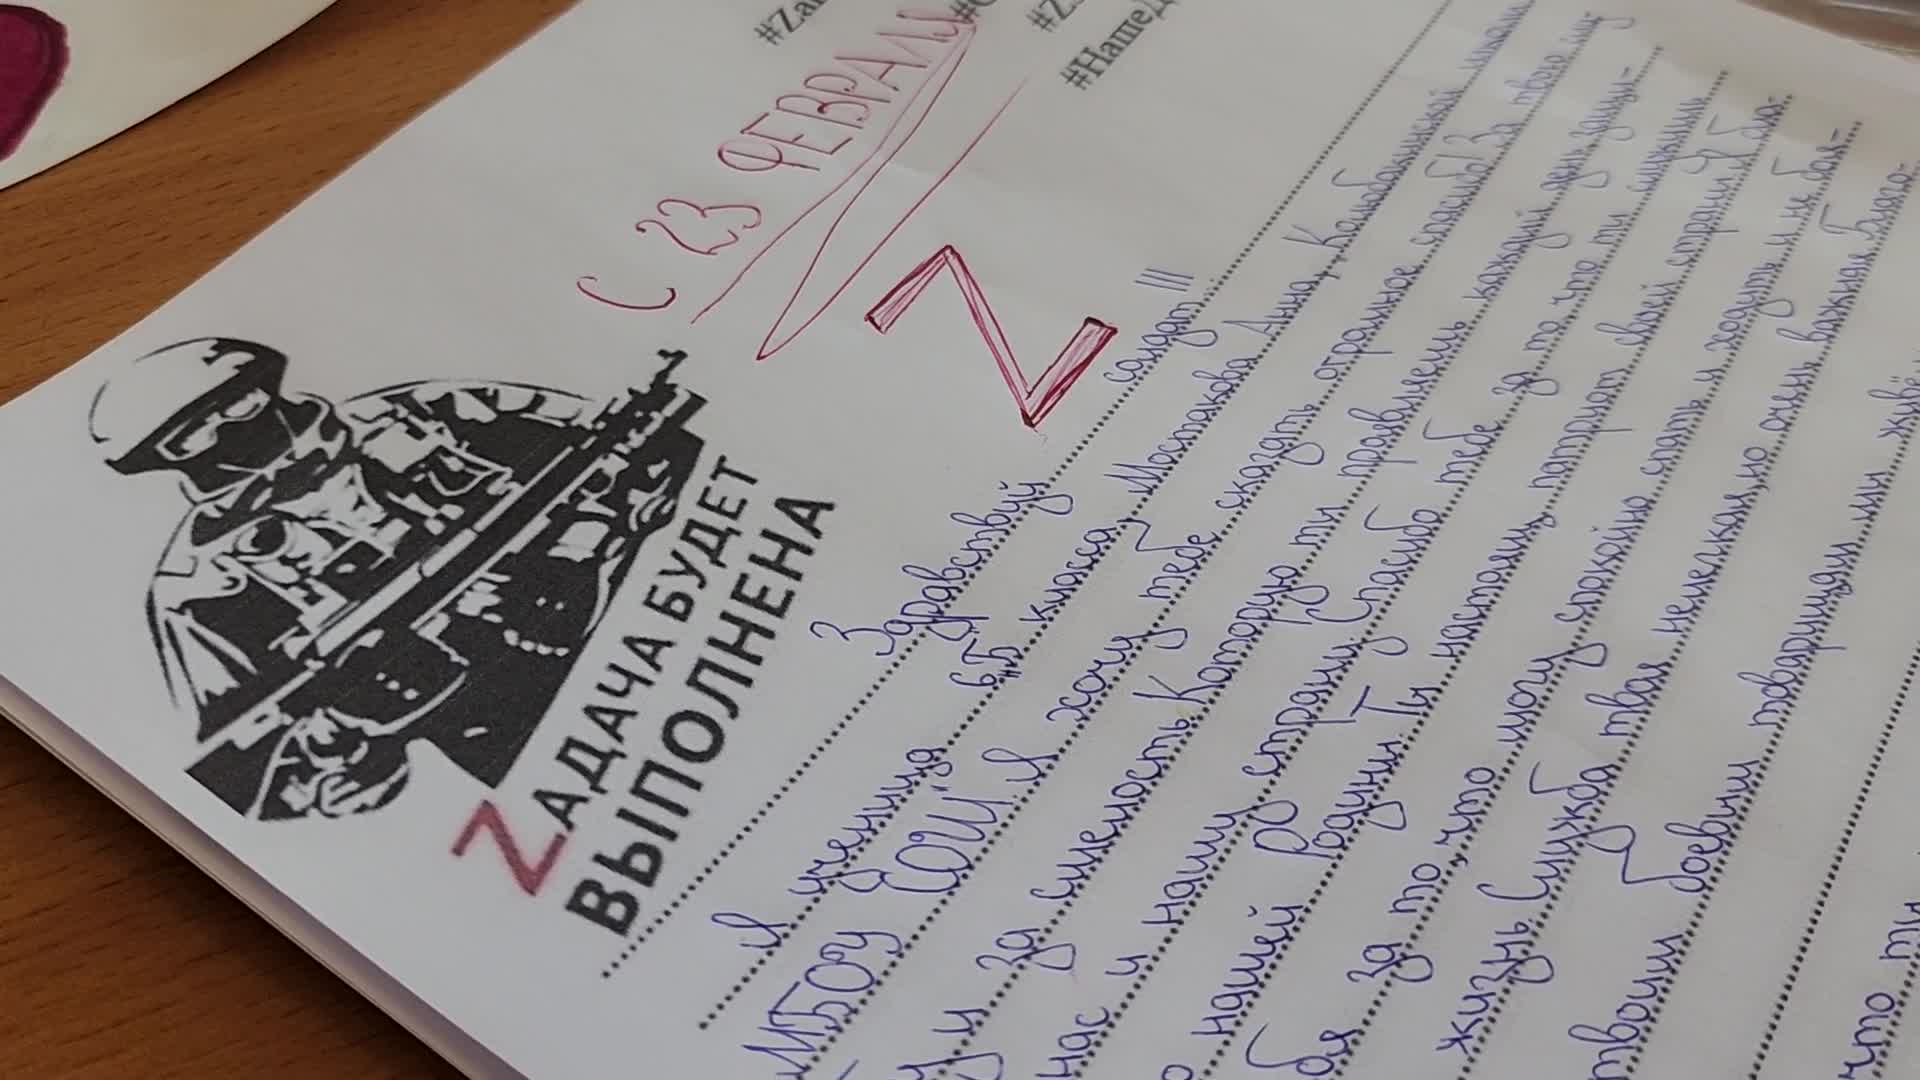 #Наше
С 23 ФЕВРАЛЯ
Z
ZАДАЧА БУДЕТ
ВЫПОЛНЕНА
Здравствуй солдат !!!
Я ученица 6"Б" класса, Анна,
МБОУ СОШ" Я хочу тебе сказать огромное спасибо! За твою
и за смелость. Которую ты проявляешь каждый день защи-
нас и нашу страну. Спасибо тебе за то что ты служишь
нашей Родины. Ты настоящ. патриот своей страны. Я бла-
за то, что могу спокойно спать и ходить и не боя-
жизнь. Служба твоя нелегкая, но очень важная. Благо-
твоим боевым товарищам мы живё
что ты